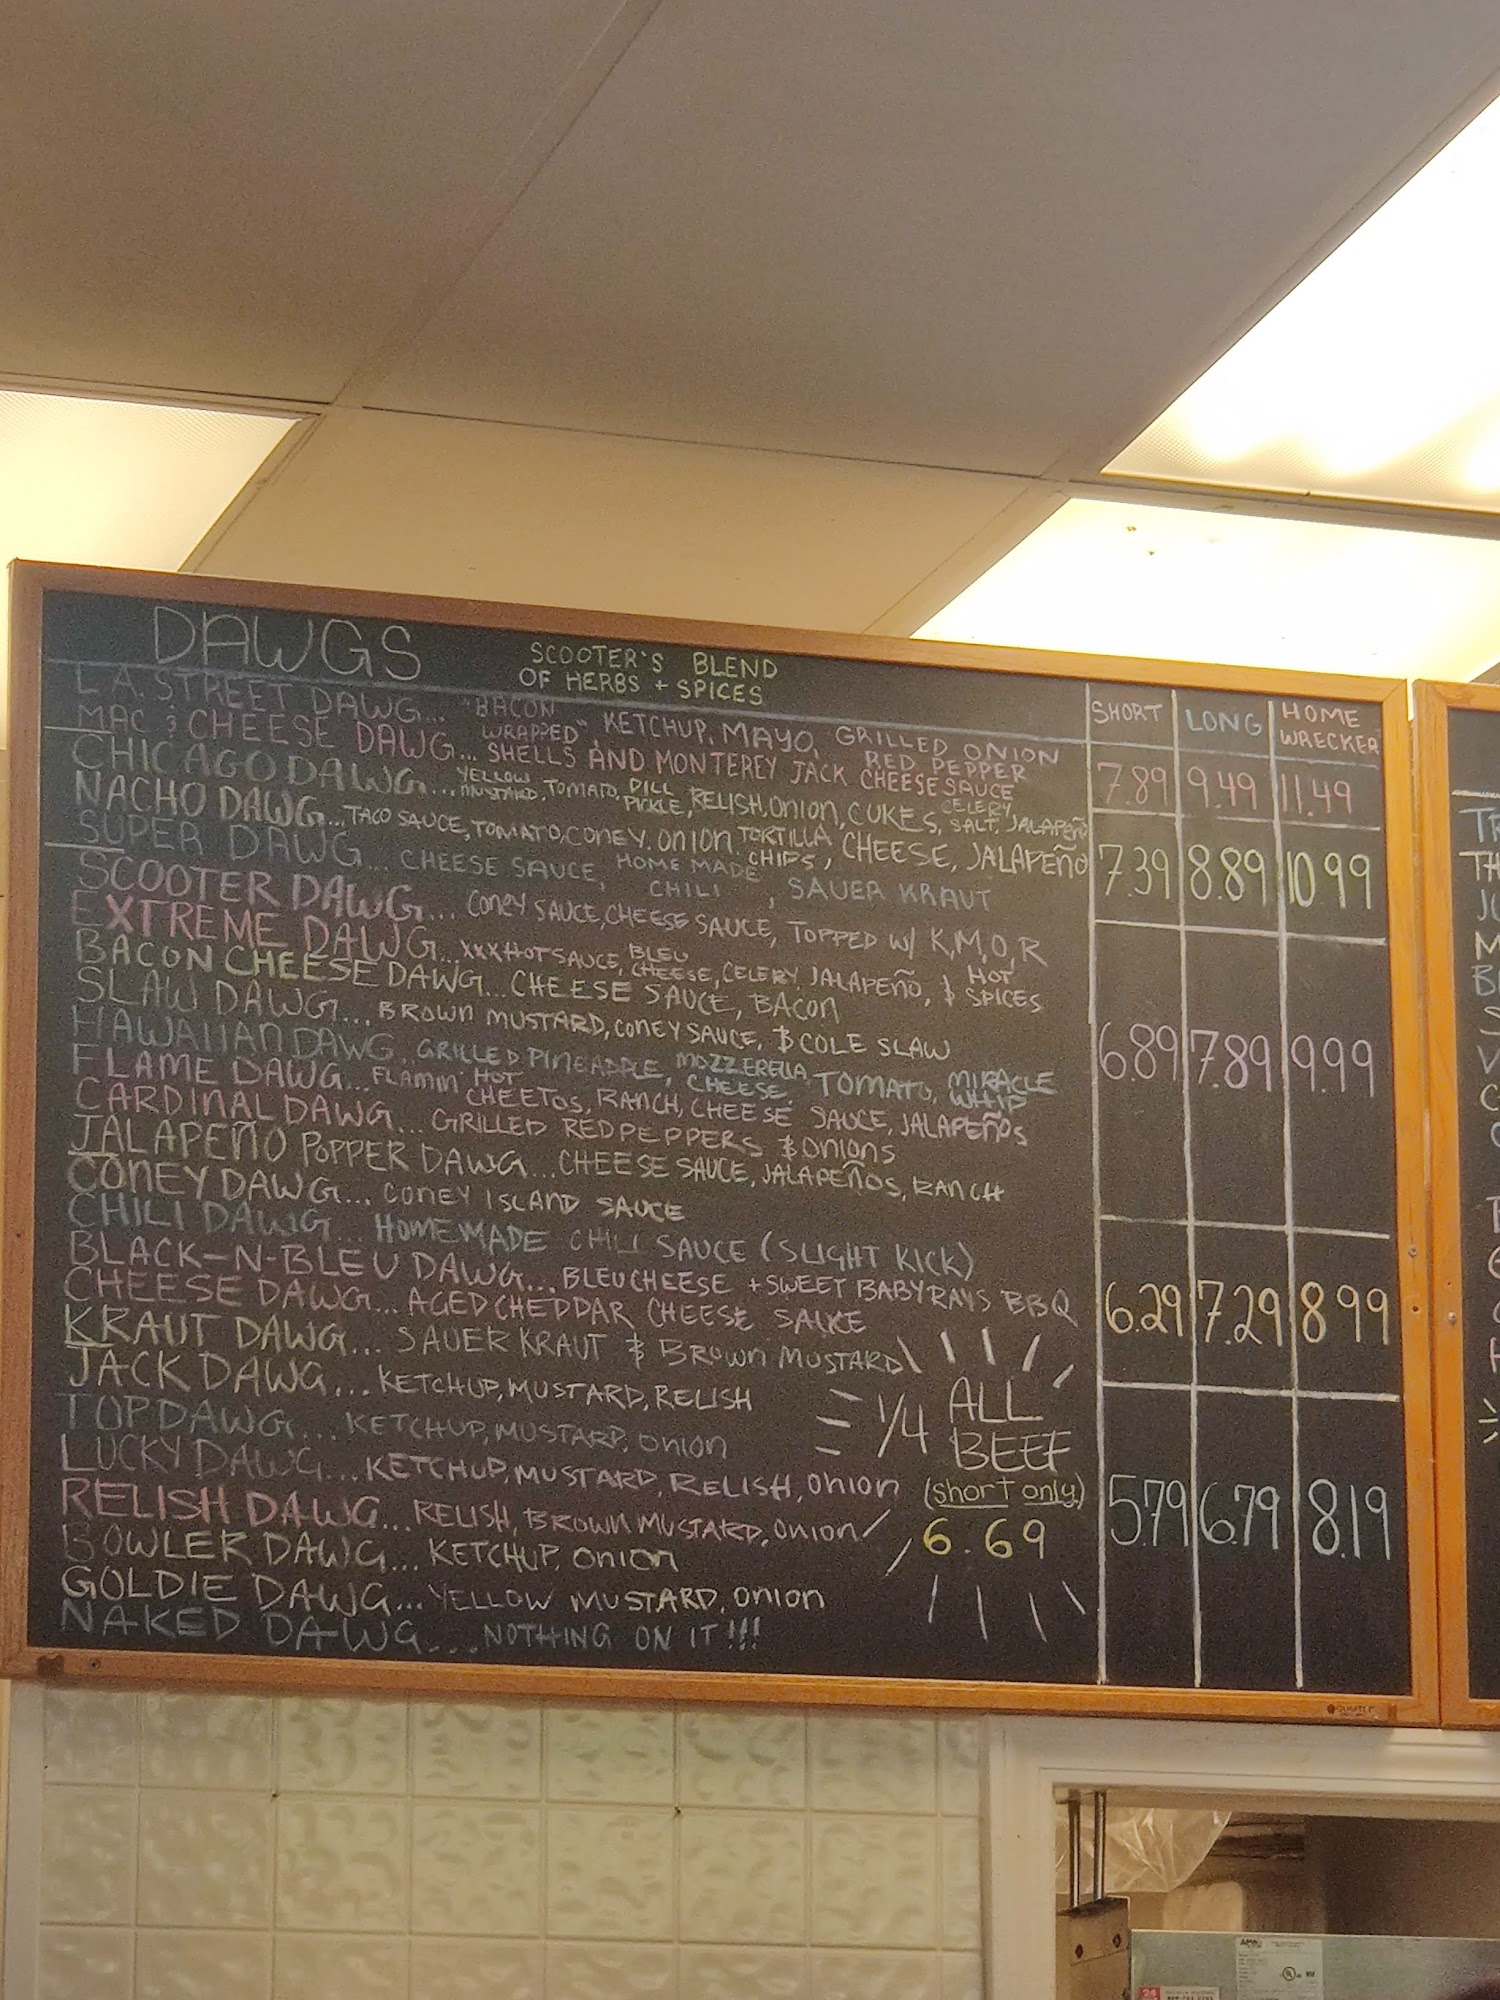 DAWGS
SCOOTER'S BLEND
OF HERBS + SPICES
SHORT LONG HOME WRECKER
L.A. STREET DAWG... "BACON WRAPPED" KETCHUP, MAYO, GRILLED ONION RED PEPPER
MAC & CHEESE DAWG... SHELLS AND MONTEREY JACK CHEESE SAUCE
7.89 9.49 11.49
CHICAGO DAWG... YELLOW MUSTARD, TOMATO, DILL PICKLE, RELISH, ONION, CUKES, CELERY SALT, JALAPEÑO
NACHO DAWG... TACO SAUCE, TOMATO, CONEY, ONION, TORTILLA CHIPS, CHEESE, JALAPEÑO
SUPER DAWG... CHEESE SAUCE, HOME MADE CHILI, SAUER KRAUT
7.39 8.89 10.99
SCOOTER DAWG... CONEY SAUCE, CHEESE SAUCE, TOPPED W/ K,M,O,R
EXTREME DAWG... XXX HOT SAUCE, BLEU CHEESE, CELERY, JALAPEÑO, & HOT SPICES
BACON CHEESE DAWG... CHEESE SAUCE, BACON
SLAW DAWG... BROWN MUSTARD, CONEY SAUCE, & COLE SLAW
HAWAIIAN DAWG.. GRILLED PINEAPPLE, MOZZERELLA CHEESE, TOMATO, MIRACLE WHIP
FLAME DAWG... FLAMIN' HOT CHEETOS, RANCH, CHEESE SAUCE, JALAPEÑOS
CARDINAL DAWG... GRILLED RED PEPPERS & ONIONS
JALAPEÑO POPPER DAWG... CHEESE SAUCE, JALAPEÑOS, RANCH
6.89 7.89 9.99
CONEY DAWG... CONEY ISLAND SAUCE
CHILI DAWG... HOMEMADE CHILI SAUCE (SLIGHT KICK)
BLACK-N-BLEU DAWG... BLEU CHEESE + SWEET BABY RAYS BBQ
CHEESE DAWG... AGED CHEDDAR CHEESE SAUCE
KRAUT DAWG... SAUER KRAUT & BROWN MUSTARD
6.29 7.29 8.99
JACK DAWG... KETCHUP, MUSTARD, RELISH
TOP DAWG... KETCHUP, MUSTARD, ONION
LUCKY DAWG... KETCHUP, MUSTARD, RELISH, ONION
RELISH DAWG... RELISH, BROWN MUSTARD, ONION
BOWLER DAWG... KETCHUP, ONION
GOLDIE DAWG... YELLOW MUSTARD, ONION
NAKED DAWG... NOTHING ON IT!!!
5.79 6.79 8.19
1/4 ALL BEEF
(short only)
6.69